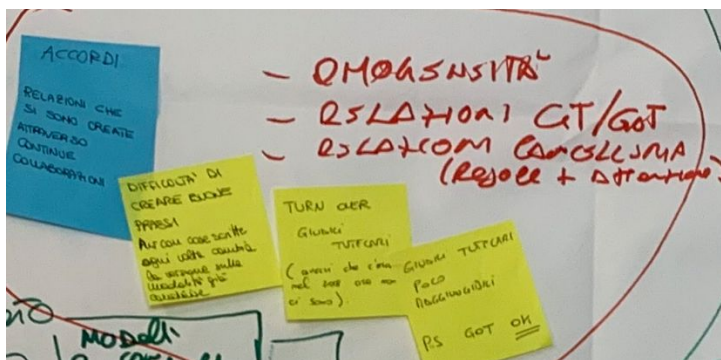 ACCORDI
RELAZIONI CHE
SI SONO CREATE
ATTRAVERSO
CONTINUE
COLLABORAZIONI
- OMOGENEITÀ
- RELAZIONI GT/GOT
- RELAZIONI CANCELLERIA
(Regole + Attenzione)
DIFFICOLTÀ DI
CREARE BUONE
PRASSI
Anche con cose scritte
ogni volta cambia
la versione sulle
modalità già
condivise
TURN OVER
GIUDICI
TUTELARI
(quelli che c'erano
nel ora non
ci sono).
GIUDICI TUTELARI
POCO
RAGGIUNGIBILI
P.S GOT OK
MODELLI